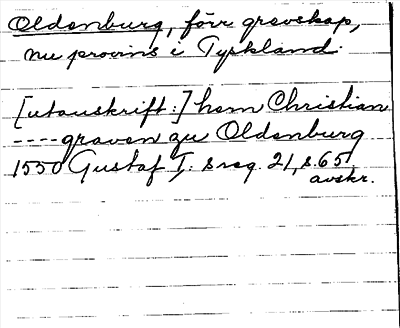 Oldenburg, förr grevskap,
nu provins i Tyskland.
[utanskrift:] hern Christian
----graven zu Oldenburg
1550 Gustaf I: s reg. 21, s. 65,
avskr.